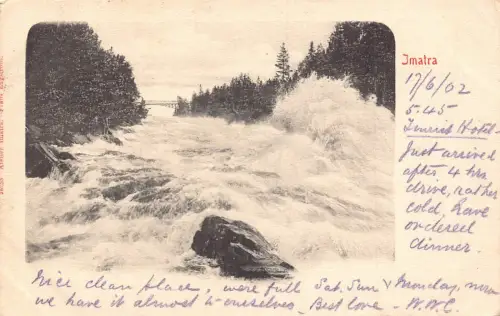 Imatra
17/6/02
5.45
Hotel
Just arrived
after 4 hrs
drive, rather
cold, have
ordered
dinner.
Nice clean place, were full Sat. Sun & Monday, now
we have it almost to ourselves. Best love - W.W.C.